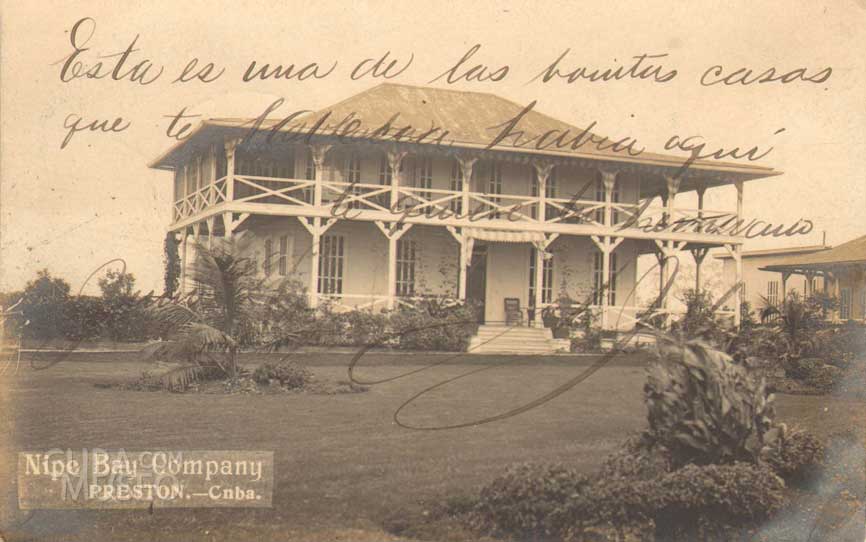 Esta es una de las bonitas casas
que te hablaba había aquí
te quiere tu hermano
Nipe Bay Company
PRESTON.—Cnba.
CUBA COM
MUSEO